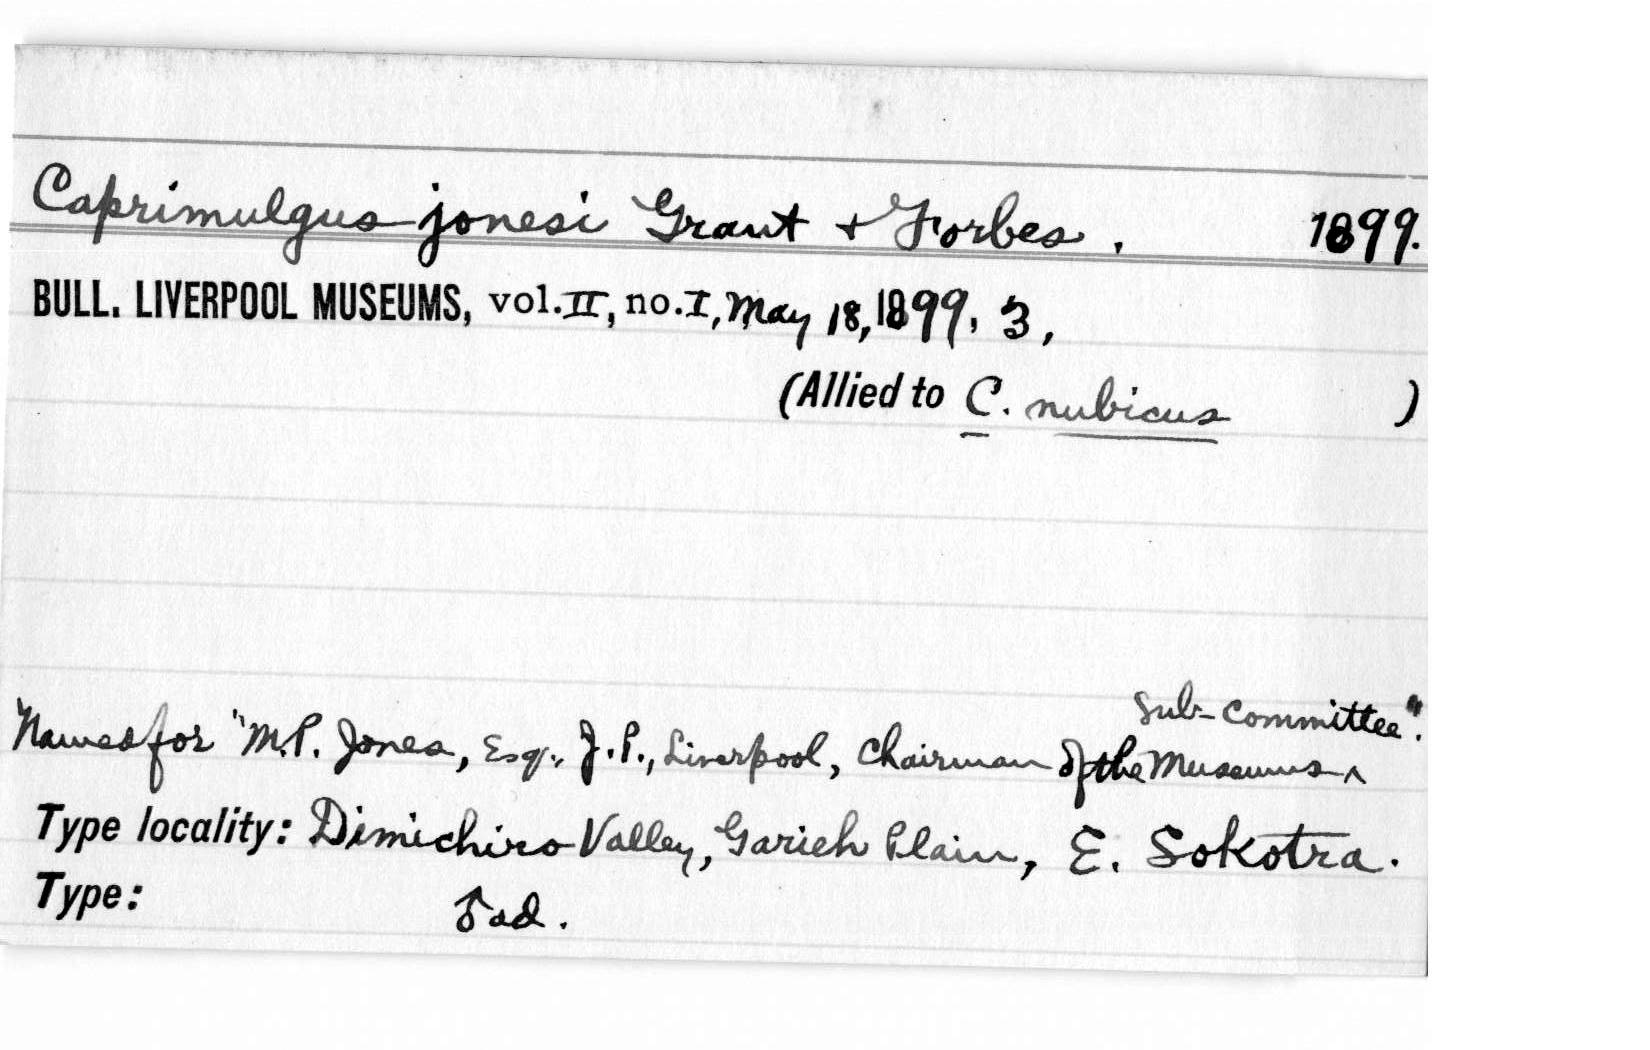 Caprimulgus jonesi Grant + Forbes. 1899.
BULL. LIVERPOOL MUSEUMS, vol. II, no. I, May 18, 1899, 3,
(Allied to C. nubicus )
Named for "M.P. Jones, Esq., J.P., Liverpool, Chairman of the Museums ^ Sub-Committee".
Type locality: Dimichiro Valley, Garieh Plain, E. Sokotra.
Type: ♂ ad.